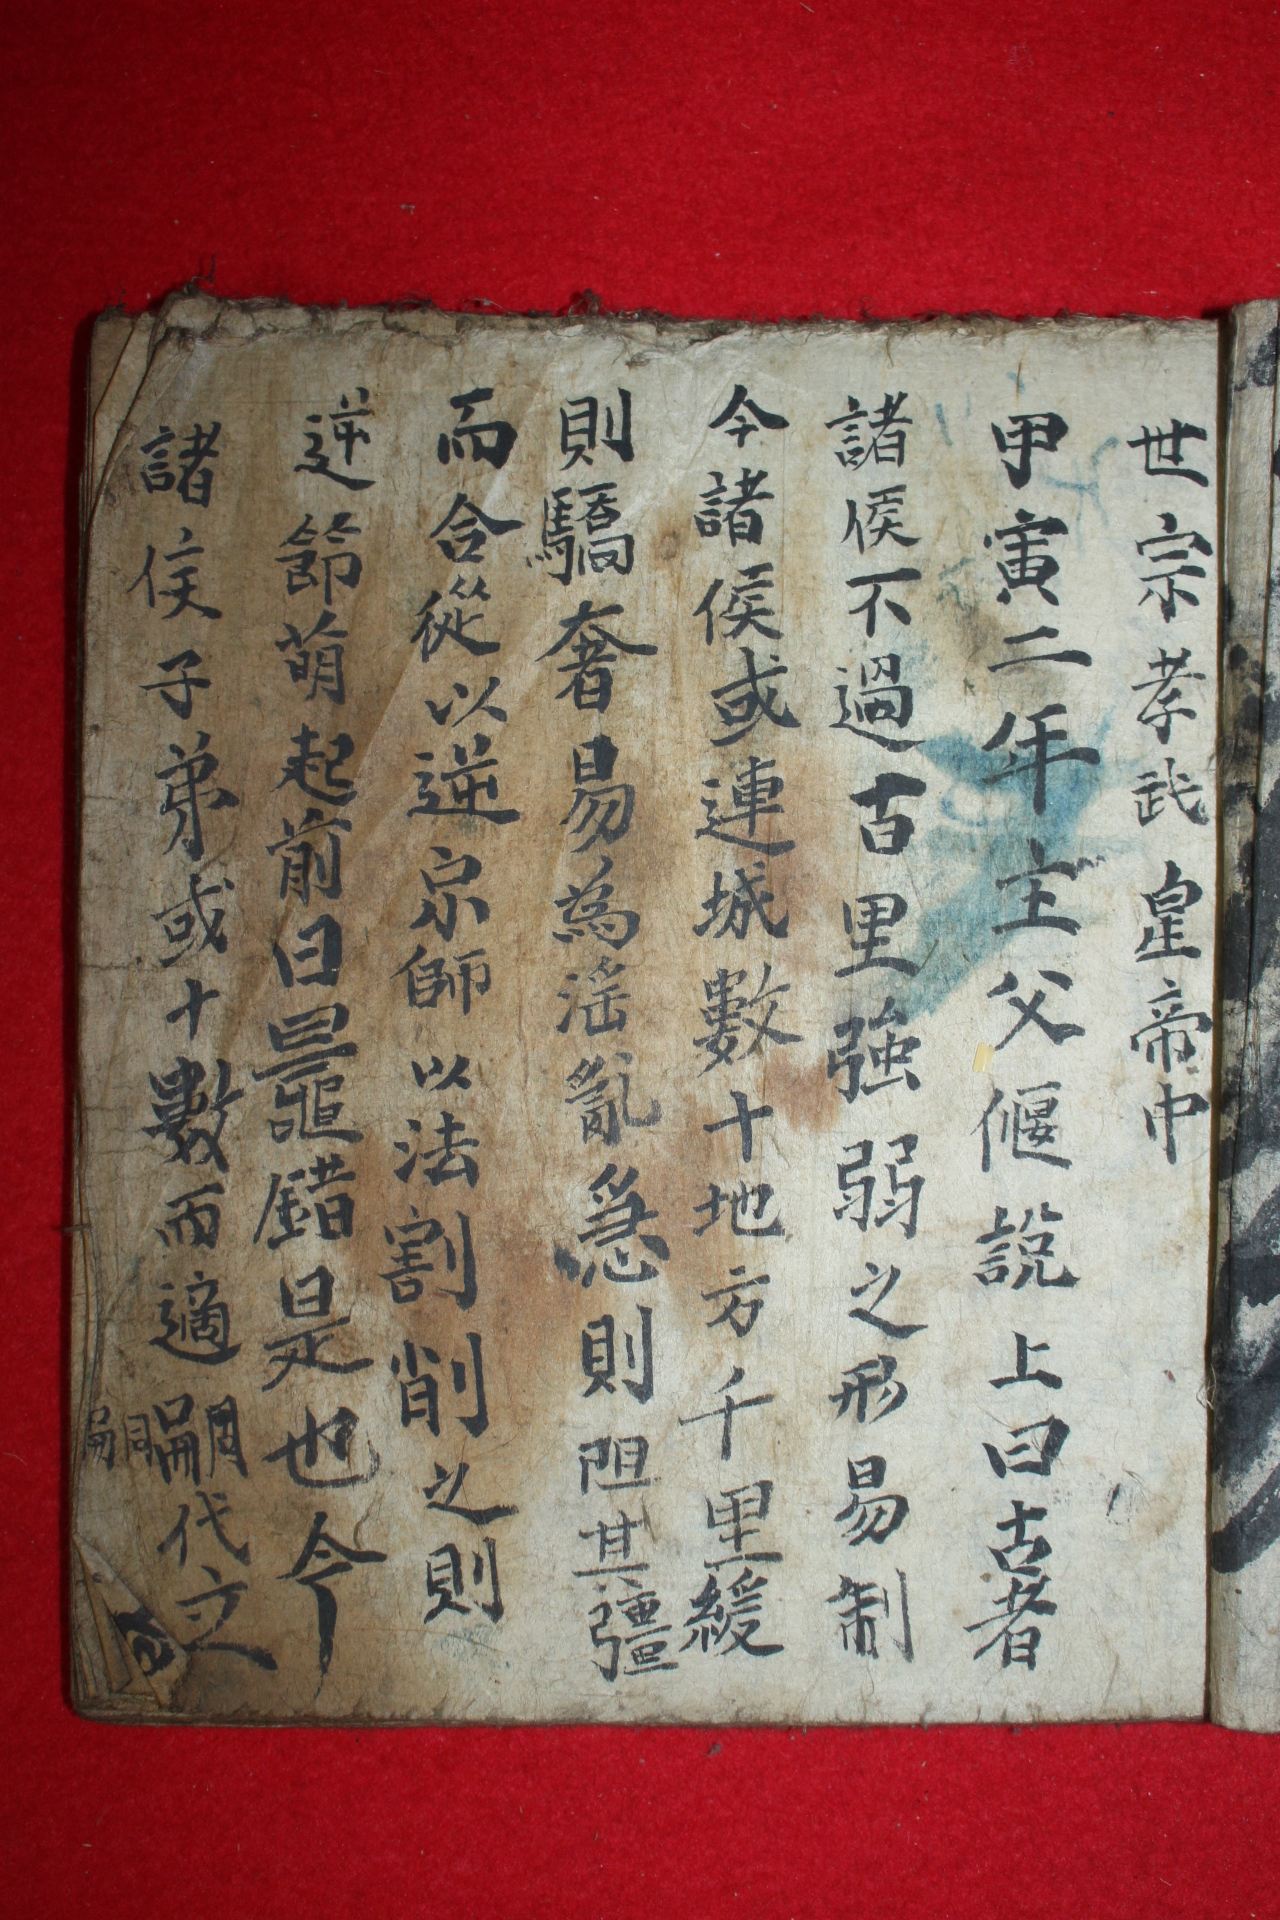 世宗孝武皇帝中
甲寅二年主父偃說上曰古者
諸侯不過百里強弱之形易制
今諸侯或連城數十地方千里緩
則驕奢易為滛亂急則阻其彊
而合從以逆京師以法割削之則
逆節萌起前日鼂錯是也今
諸侯子弟或十數而適嗣代立